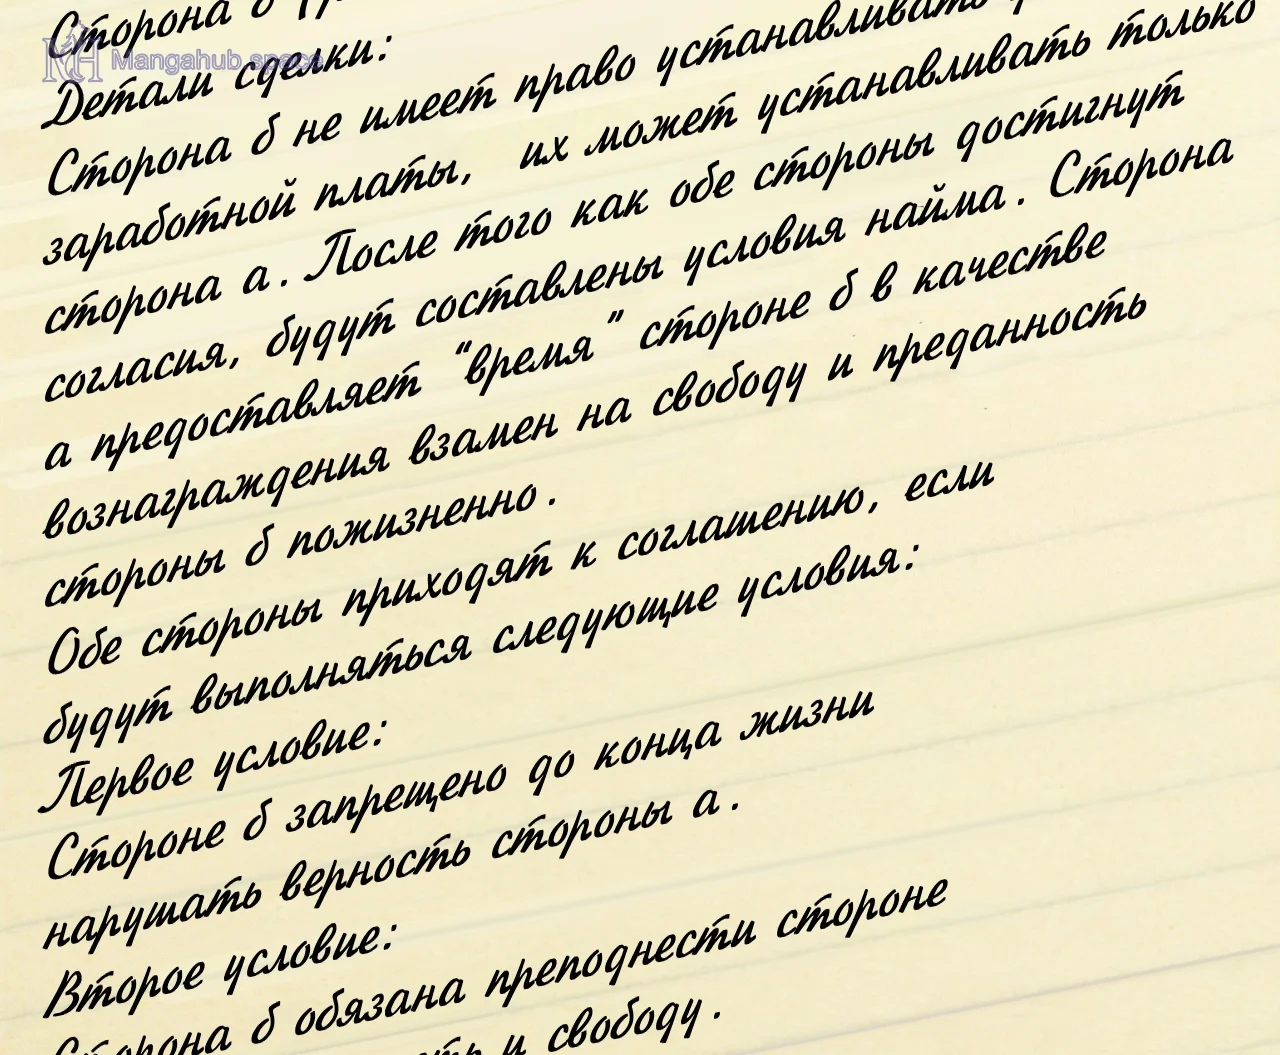 Сторона б
Mangahub.space
Детали сделки:
Сторона б не имеет право устанавливать
заработной платы, их может устанавливать только
сторона а. После того как обе стороны достигнут
согласия, будут составлены условия найма. Сторона
а предоставляет "время" стороне б в качестве
вознаграждения взамен на свободу и преданность
стороны б пожизненно.
Обе стороны приходят к соглашению, если
будут выполняться следующие условия:
Первое условие:
Стороне б запрещено до конца жизни
нарушать верность стороны а.
Второе условие:
Сторона б обязана преподнести стороне
и свободу.